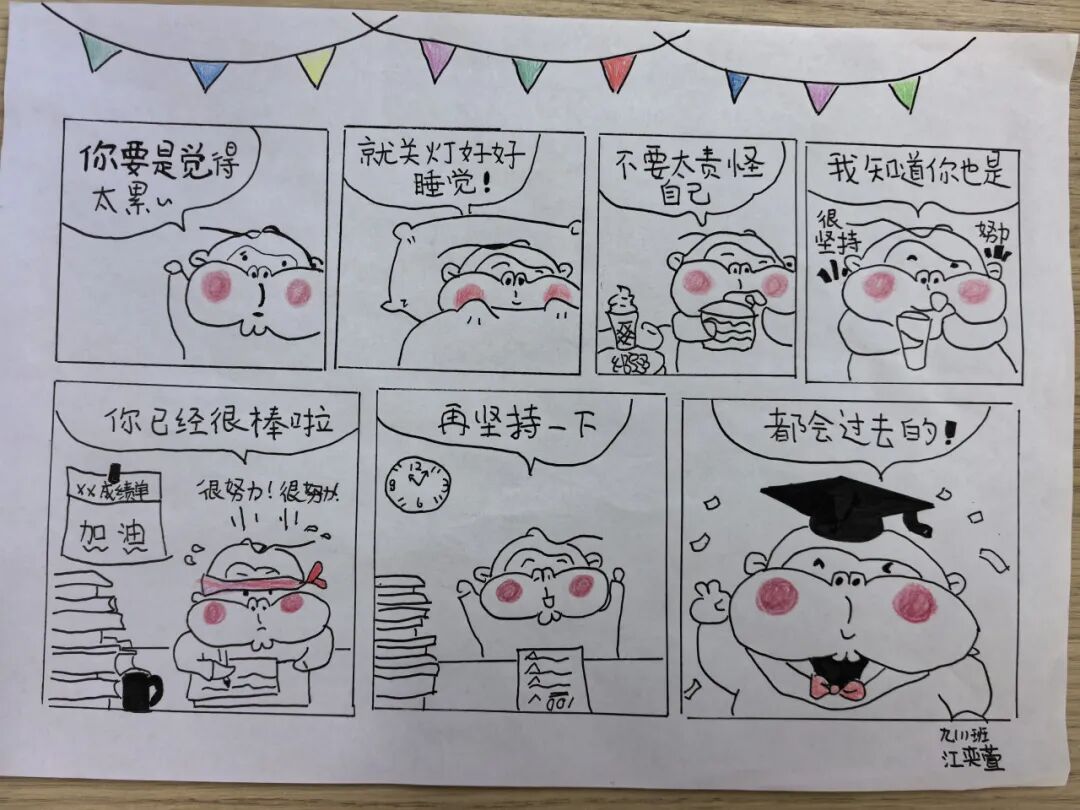 你要是觉得
太累~
就关灯好好
睡觉!
不要太责怪
自己
我知道你也是
很
坚持
努力
你已经很棒啦
XX成绩单
加油
很努力!很努力!
再坚持一下
12
3
6
9
100
都会过去的!
九(1)班
江奕萱